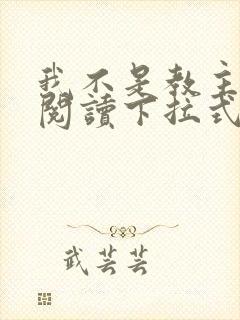 我不是教主
閱讀下拉式
武芸芸